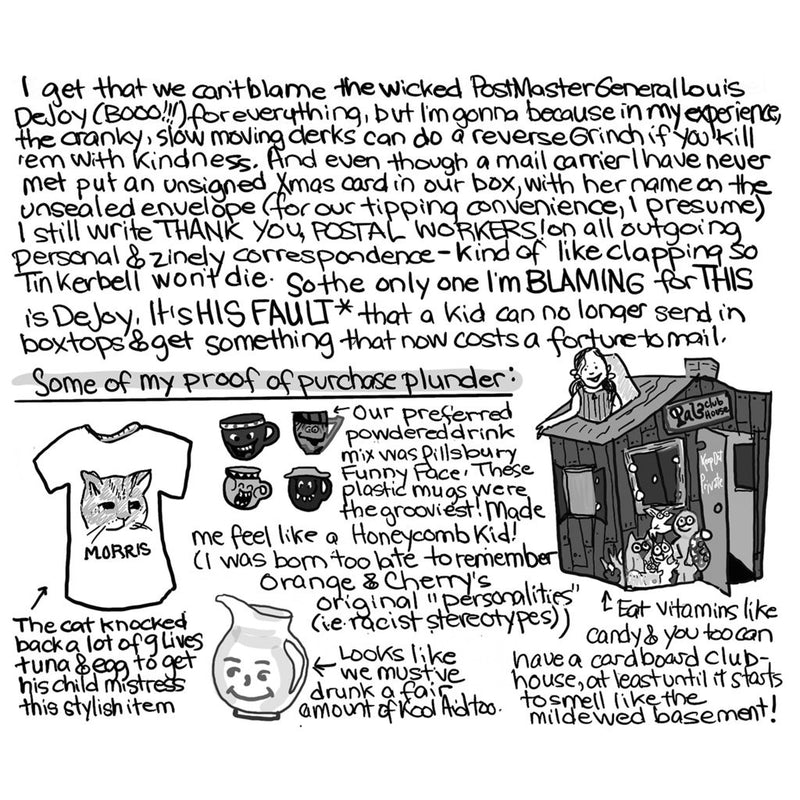 I get that we can't blame the wicked PostMaster General Louis
DeJoy (BOOO!!!) for everything, but I'm gonna because in my experience,
the cranky, slow moving clerks can do a reverse Grinch if you kill
'em with kindness. And even though a mail carrier I have never
met put an unsigned Xmas card in our box, with her name on the
unsealed envelope (for our tipping convenience, I presume)
I still write THANK YOU, POSTAL WORKERS! on all outgoing
personal & zinely correspondence - kind of like clapping so
Tinkerbell won't die. So the only one I'm BLAMING for THIS
is DeJoy. It's HIS FAULT* that a kid can no longer send in
boxtops & get something that now costs a fortune to mail.
Some of my proof of purchase plunder:
MORRIS
The cat knocked
back a lot of 9 Lives
tuna & egg to get
his child mistress
this stylish item
Our preferred
powdered drink
mix was Pillsbury
Funny Face. These
plastic mugs were
the grooviest! Made
me feel like a Honeycomb Kid!
(I was born too late to remember
Orange & Cherry's
original "personalities"
(ie racist stereotypes))
Looks like
we must've
drunk a fair
amount of Kool Aid too.
Pals Club
House
Keep Out
Private
Eat vitamins like
candy & you too can
have a cardboard club-
house, at least until it starts
to smell like the
mildewed basement!